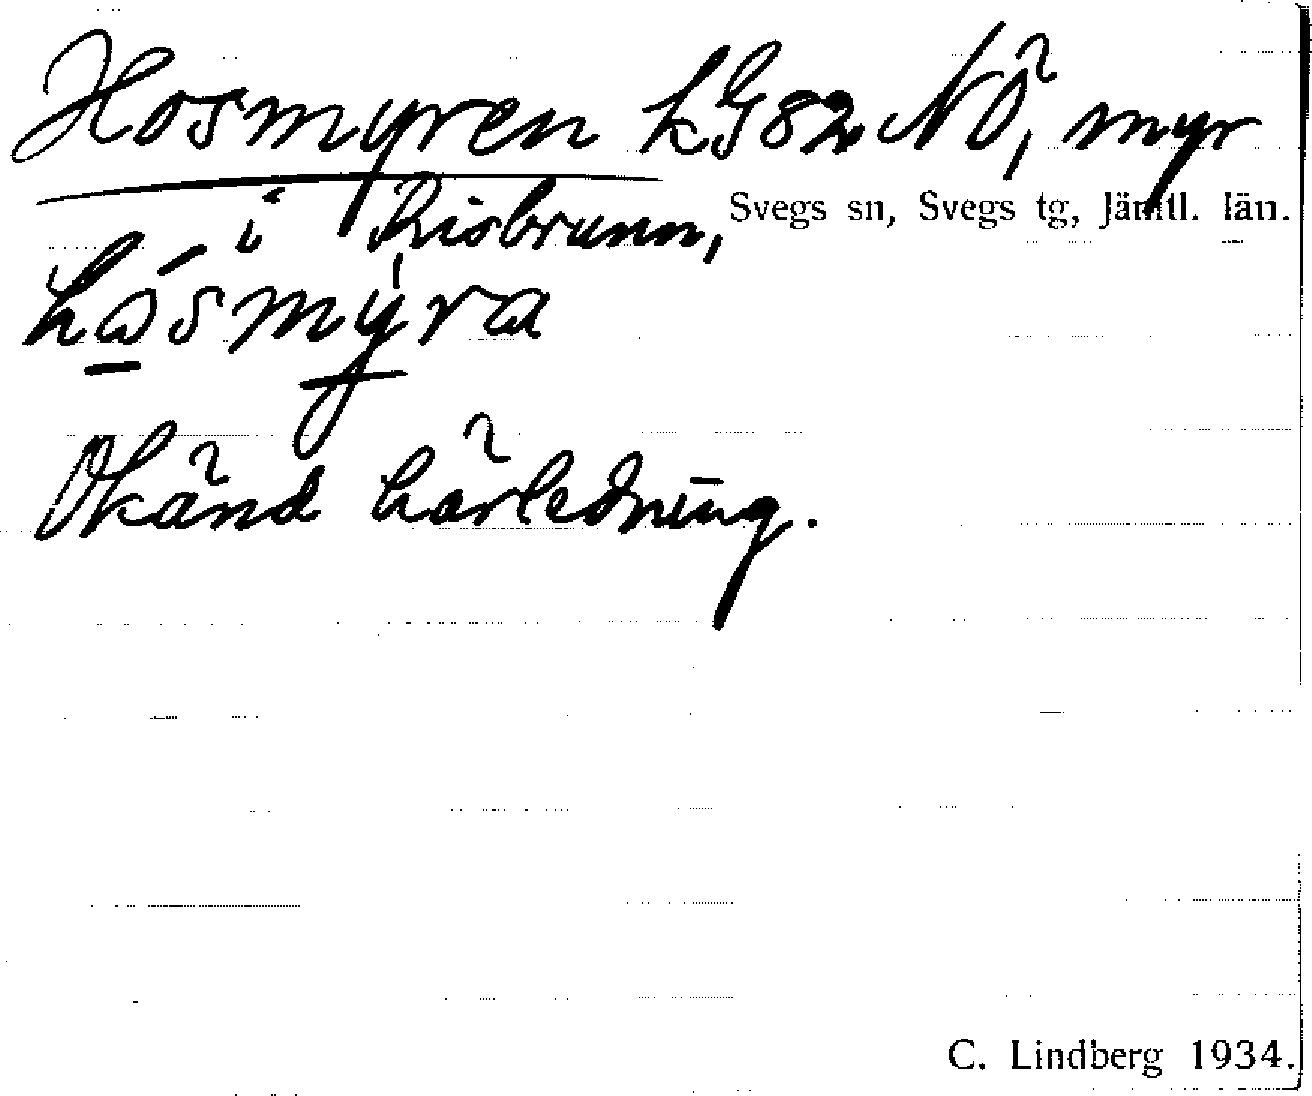 Hosmyren LG82 NÖ, myr
i Risbrunn, Svegs sn, Svegs tg, Jämtl. län.
hòsmýra
Okänd härledning.
C. Lindberg 1934.